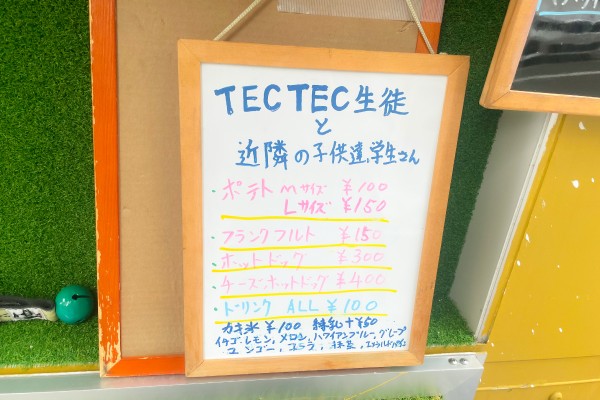 TECTEC生徒
と
近隣の子供達,学生さん
・ポテト Mサイズ ¥100
Lサイズ ¥150
・フランクフルト ¥150
・ホットドッグ ¥300
・チーズホットドッグ ¥400
・ドリンク ALL ¥100
カキ氷 ¥100 練乳+¥50
イチゴ.レモン,メロン,ハワイアンブルー,グレープ
マンゴー,コーラ,抹茶,